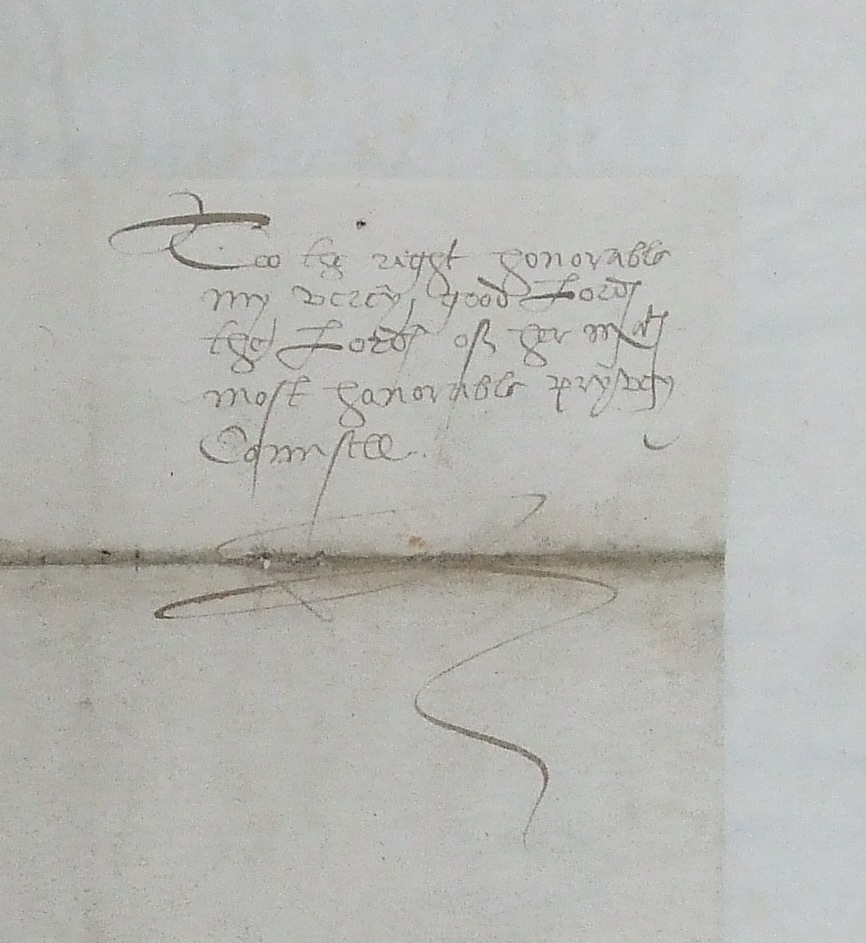 Too the right honorable
my verey good Lordes
the Lordes of her mates
most honorable pryvey
Counsell.